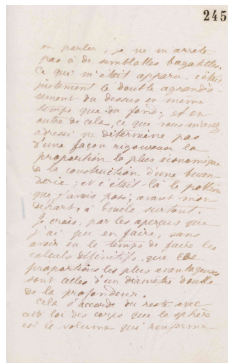 245
en parler, je ne m'arrête
pas à de semblables bagatelles.
Ce qui m'était apparu,
le double agrandis-
sement du dessus en même
temps que du fond, et en
outre de cela, ce que
ne détermine pas
d'une façon rigoureuse la
proportion la plus économique
à la construction d'une
; or c'était là le problème
que j'avais posé, avant mon
départ, à
Je crois, par les aperçus que
j'ai pu en faire, sans
avoir eu le temps de faire les
calculs définitifs, que les
proportions les plus avantageuses
sont celles d'un diamètre double
de la profondeur.
Cela s'accorde du reste avec
cette loi des corps que la sphère
est le volume qui renferme